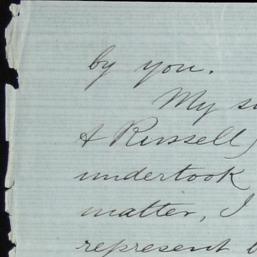 by you.
My
& Russell)
undertook
matter, I
represent